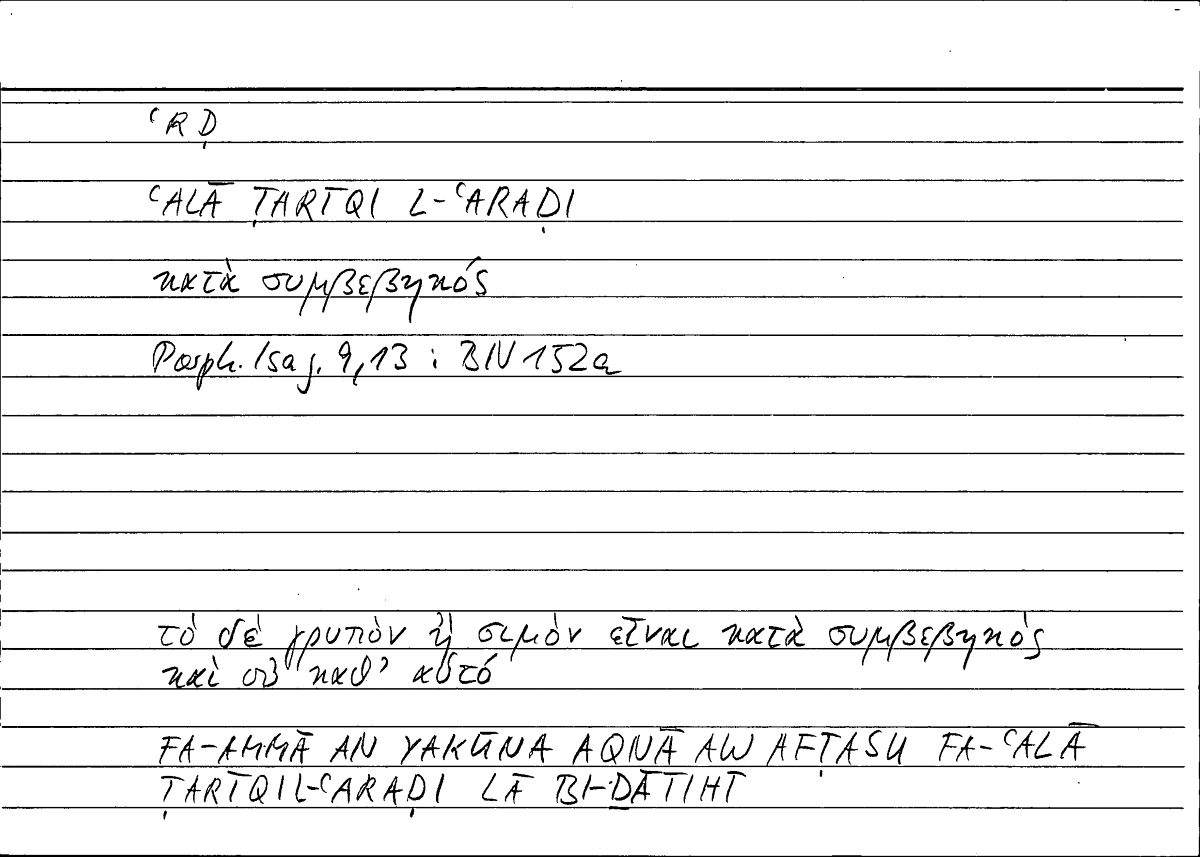 ʿRḌ
ʿALĀ ṬARĪQI L-ʿARAḌI
κατὰ συμβεβηκός
Porph. Isag. 9,13 : BIV 152a
τὸ δὲ γρυπὸν ἢ σιμὸν εἶναι κατὰ συμβεβηκὸς
καὶ οὐ καθ' αὑτό
FA-AMMĀ AN YAKŪNA AQNĀ AW AFṬASU FA-ʿALĀ
ṬARĪQI L-ʿARAḌI LĀ BI-ḎĀTIHĪ